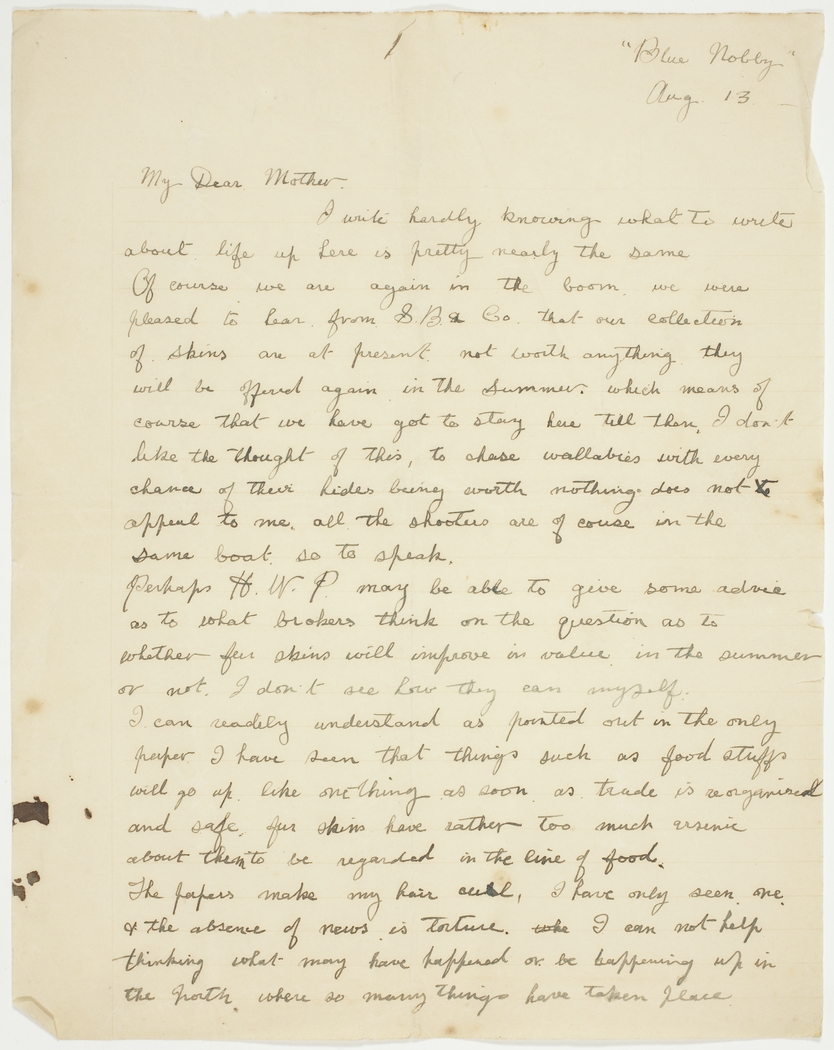 1
"Blue Nobby"
Aug 13
My Dear Mother.
I write hardly knowing what to write
about life up here is pretty nearly the same
Of course we are again in the boom. we were
pleased to hear from S.B.& Co. that our collection
of skins are at present not worth anything they
will be offered again in the summer. which means of
course that we have got to stay here till then, I don't
like the thought of this, to chase wallabies with every
chance of their hides being worth nothing does not to
appeal to me. all the shooters are of couse in the
same boat. so to speak.
Perhaps H. W. P. may be able to give some advice
as to what brokers think on the question as to
whether fur skins will improve in value in the summer
or not. I don't see how they can myself.
I can readily understand as pointed out in the only
paper I have seen that things such as food stuffs
will go up like onething as soon as trade is reorganised
and safe. fur skins have rather too much arsenic
about them to be regarded in the line of food.
The papers make my hair curl, I have only seen one
& the absence of news is torture. I can not help
thinking what may have happened or be happening up in
the North where so many things have taken place